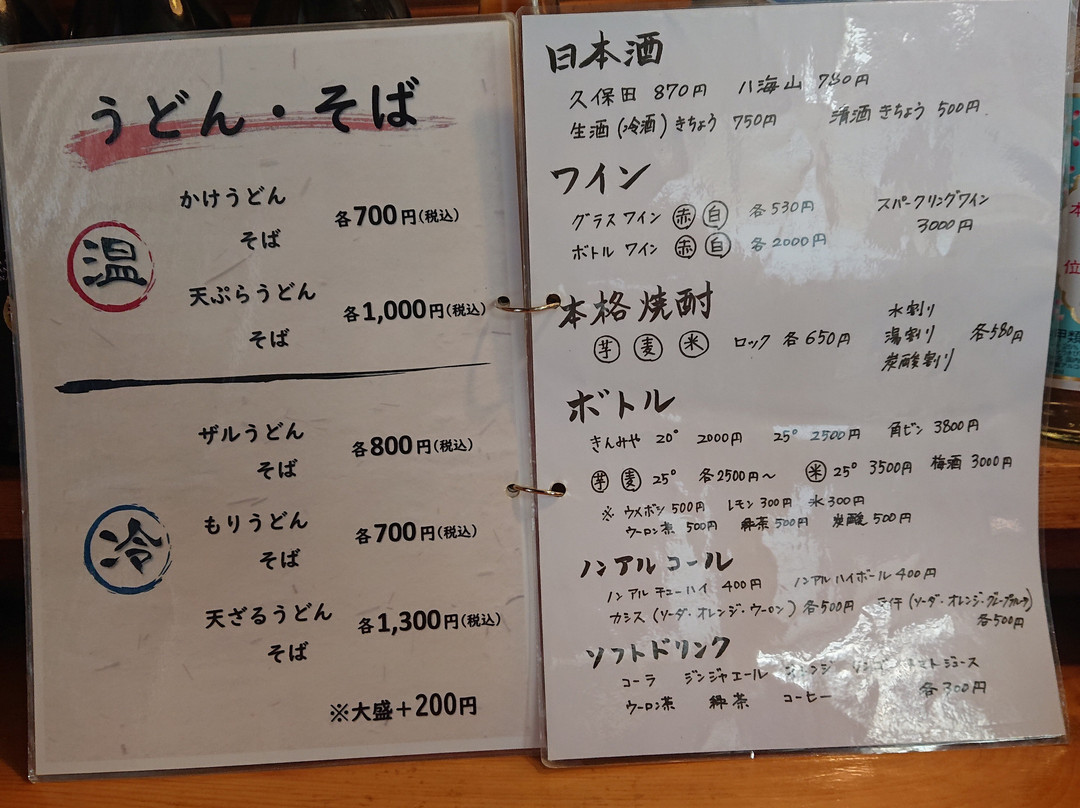 うどん・そば
温
かけうどん
そば
各700円(税込)
天ぷらうどん
そば
各1,000円(税込)
冷
ザルうどん
そば
各800円(税込)
もりうどん
そば
各700円(税込)
天ざるうどん
そば
各1,300円(税込)
※大盛+200円
日本酒
久保田 870円 八海山 780円
生酒(冷酒)きちょう 750円 清酒 きちょう 500円
ワイン
グラスワイン 赤 白 各530円
ボトルワイン 赤 白 各2000円
スパークリングワイン
3000円
本格焼酎
芋 麦 米 ロック 各650円
水割り
湯割り
炭酸割り
各580円
ボトル
きんみや 20° 2000円 25° 2500円 角ビン 3800円
芋 麦 25° 各2500円〜 米 25° 3500円 梅酒 3000円
※ ウメボシ 500円 レモン 300円 氷 300円
ウーロン茶 500円 緑茶 500円 炭酸 500円
ノンアルコール
ノンアルチューハイ 400円 ノンアルハイボール 400円
カシス(ソーダ・オレンジ・ウーロン)各500円 (ソーダ・オレンジ・グレープフルーツ)
各500円
ソフトドリンク
コーラ ジンジャエール オレンジ リンゴ トマトジュース
ウーロン茶 緑茶 コーヒー 各300円